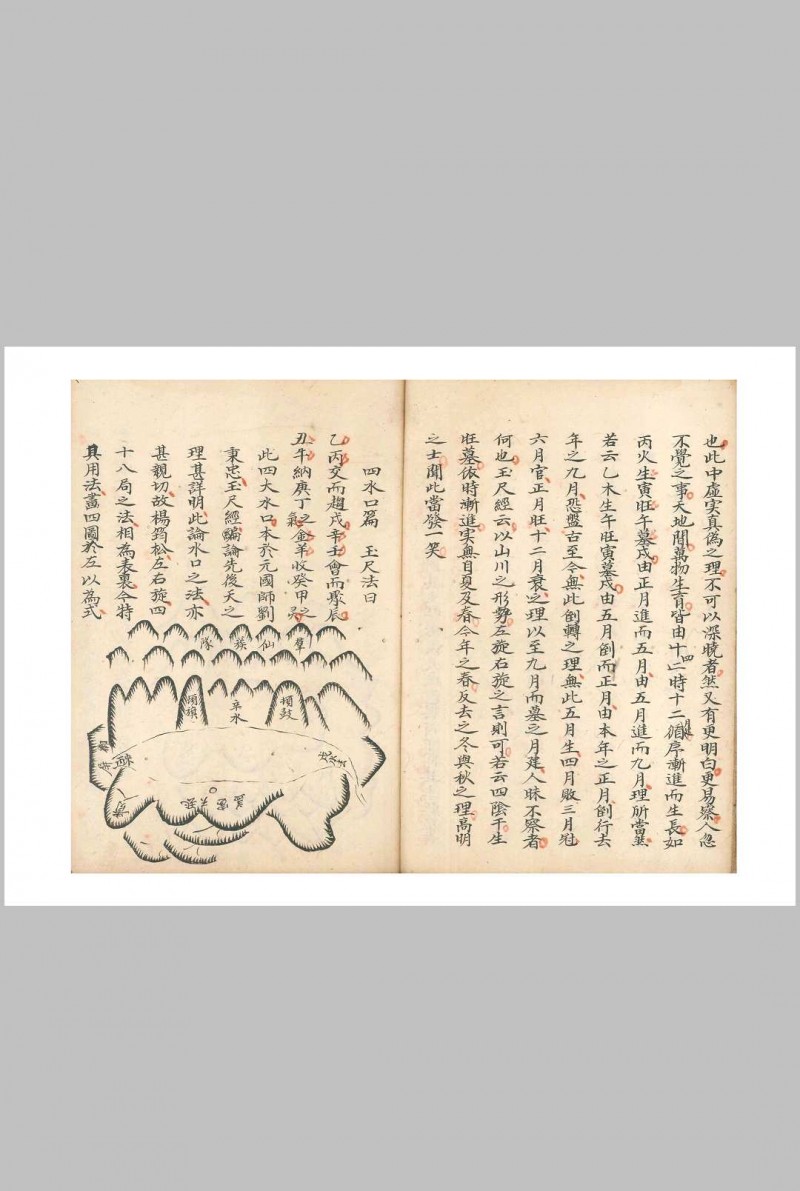 也此中虛实真偽之理不可以深曉者然又有更明白更易察人忽
不覺之事天地間萬物生育皆由十二時十二個月循序漸進而生長如
丙火生寅旺午墓戌由正月進而五月由五月進而九月理所當然
若云乙木生午旺寅墓戌由五月倒而正月由本年之正月倒行去
年之九月恐盤古至今無此倒轉之理無此五月生四月敗三月冠
六月官正月旺十二月衰之理以至九月而墓之月建人昧不察者
何也玉尺經云以山川之形勢左旋右旋之言則可若云四陰干生
旺墓依時漸進实無自夏及春今年之春反去之冬與秋之理高明
之士聞此當發一笑
四水口篇 玉尺法曰
乙丙交而趨戌辛壬會而聚辰
丑牛納庚丁之氣金羊收癸甲之灵
此四大水口本於元國師劉
秉忠玉尺經編論先後天之
理甚詳明此論水口之法亦
甚親切故楊筠松左右旋四
十八局之法相為表裏今特
具用法畫四圖於左以為式
羣仙簇隊
頓鼓
頓鎗